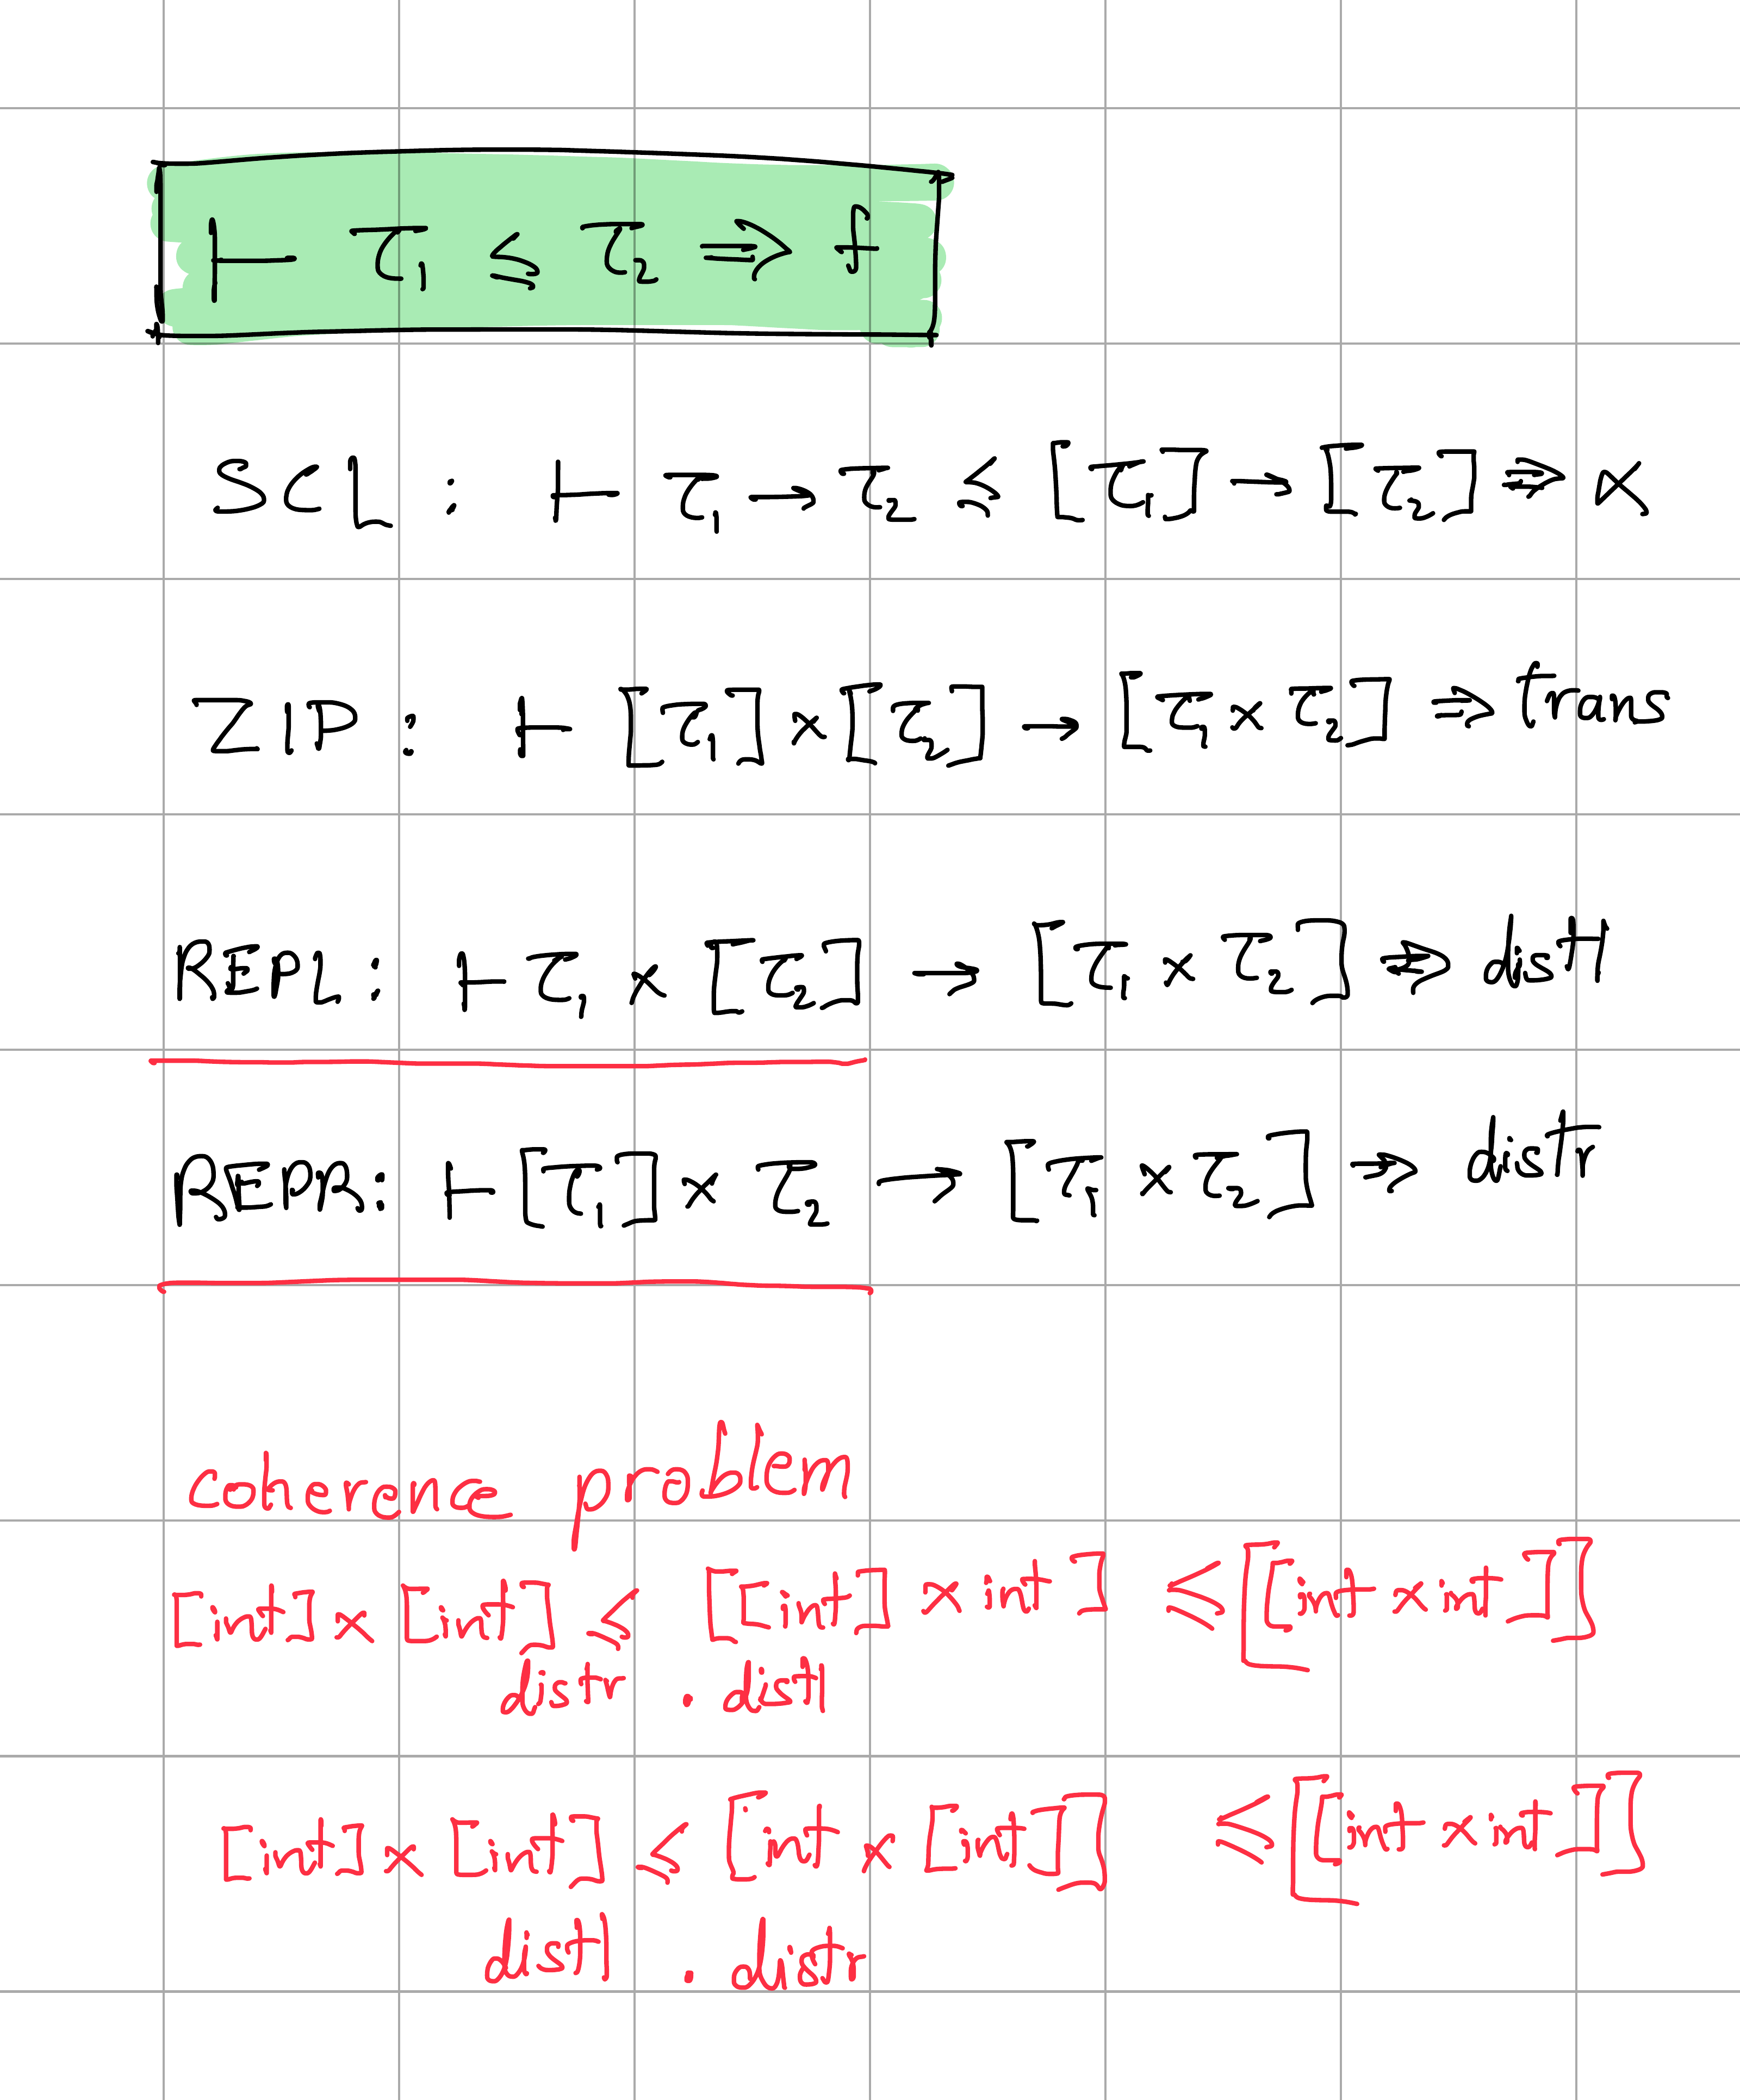 ⊢ τ₁ ≤ τ₂ ⇒ f
SCL : ⊢ τ₁ → τ₂ ≤ [τ₁] → [τ₂] ⇒ α
ZIP : ⊢ [τ₁] × [τ₂] → [τ₁ × τ₂] ⇒ trans
REPL : ⊢ τ₁ × [τ₂] → [τ₁ × τ₂] ⇒ distl
REPR : ⊢ [τ₁] × τ₂ → [τ₁ × τ₂] ⇒ distr
coherence problem
[int] × [int] ≤ [[int] × int] ≤ [[int × int]]
distr . distl
[int] × [int] ≤ [int × [int]] ≤ [[int × int]]
distl . distr